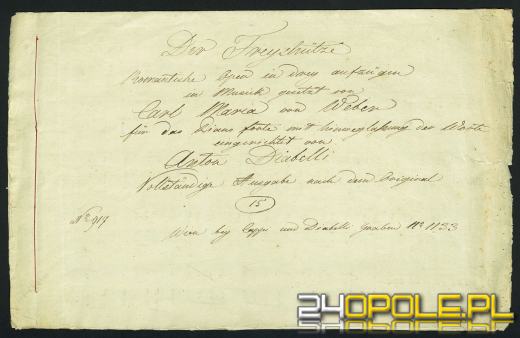 Der Freyshütze
Romantische Oper in drey aufzügen
in Musik gesetzt von
Carl Maria von Weber
für das Piano forte mit hinweglaßung der Worte
eingerichtet von
Anton Diabelli
Vollständige Ausgabe nach dem Original
15
No 917
Wien bey Cappi und Diabelli Graben No 1133
24OPOLE.PL